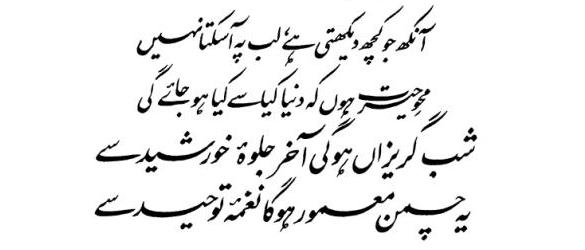 آنکھ جو کچھ دیکھتی ہے، لب پہ آسکتا نہیں
محوِ حیرت ہوں کہ دنیا کیا سے کیا ہو جائے گی
شب گریزاں ہوگی آخر جلوۂ خورشید سے
یہ چمن معمور ہوگا نغمۂ توحید سے